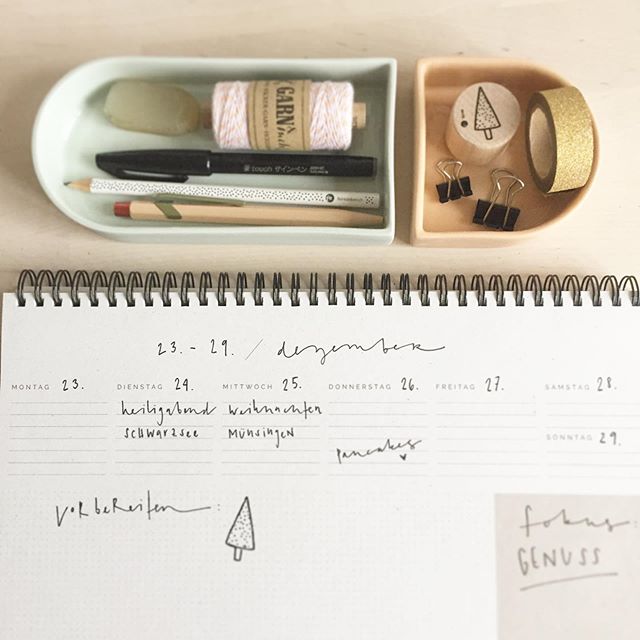 GARN
touch サインペン
23. - 29. / dezember
MONTAG 23. DIENSTAG 24. MITTWOCH 25. DONNERSTAG 26. FREITAG 27. SAMSTAG 28.
heiligabend weihnachten
SCHWARZSEE MÜNSINGEN SONNTAG 29.
pancakes
vorbereiten:
fokus:
GENUSS